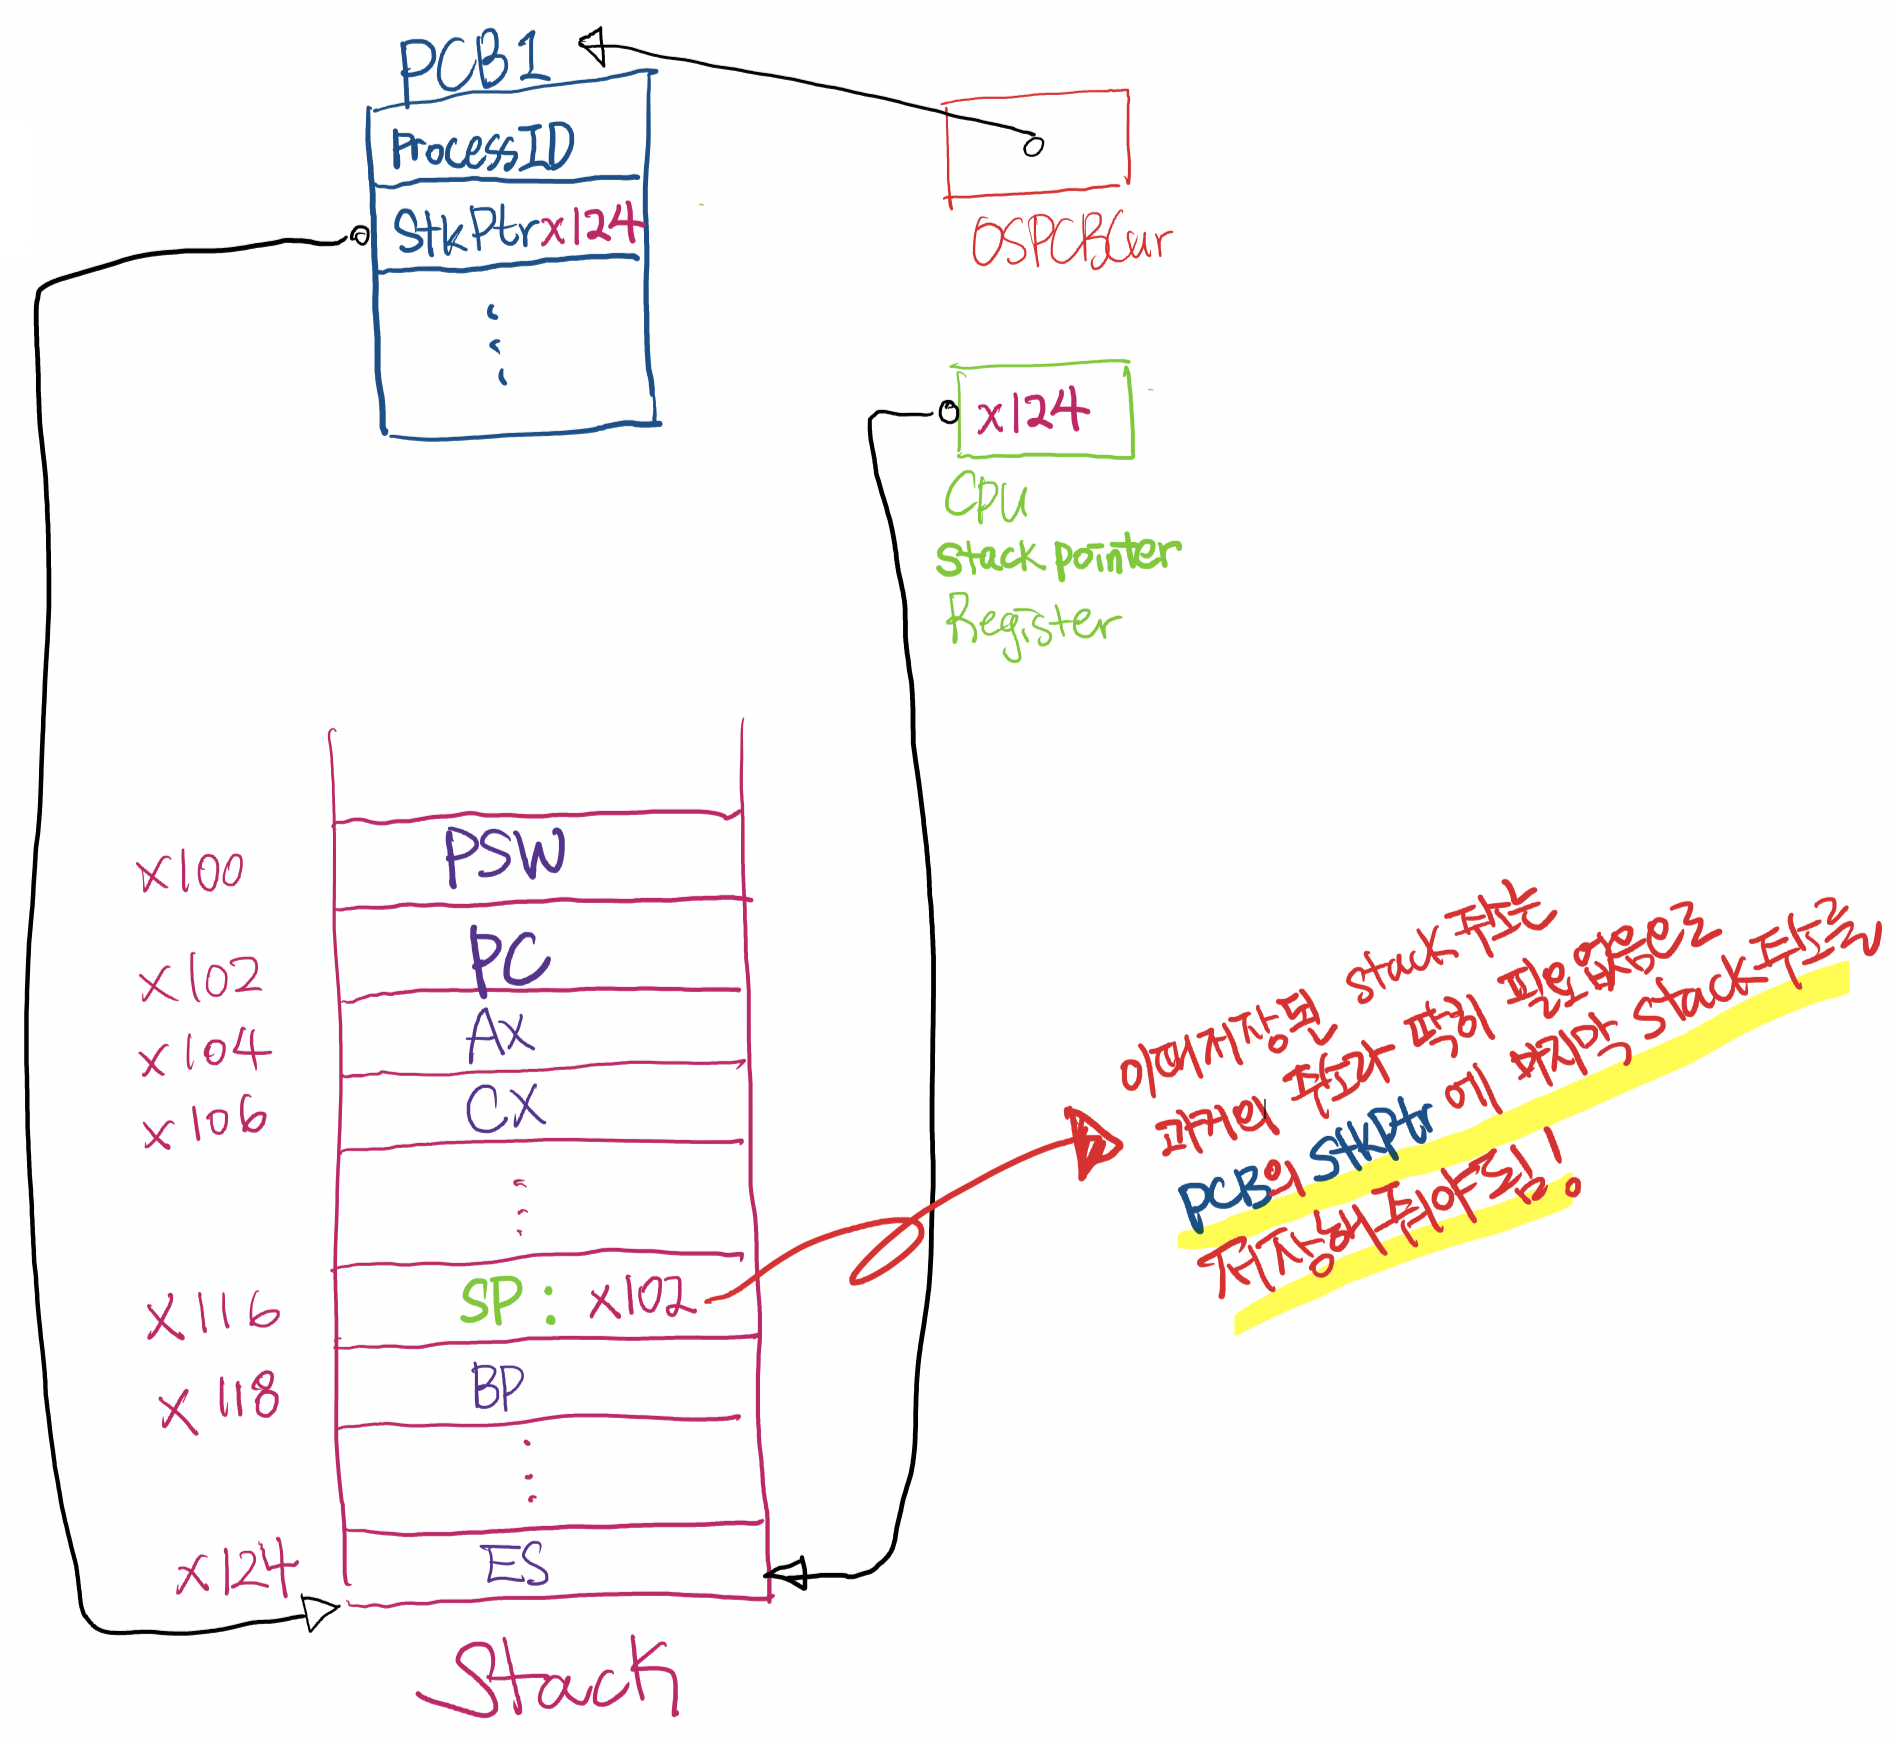 PCB1
ProcessID
StkPtr x124
OSPCBCur
x124
CPU
stack pointer
Register
x100 PSW
x102 PC
x104 AX
x106 CX
x116 SP : x102
x118 BP
x124 ES
Stack
이때저장된 stack 주소는
과거의 주소라 딱히 필요없음으로
PCB의 StkPtr에 마지막 Stack 주소를
저장해줘야됨!